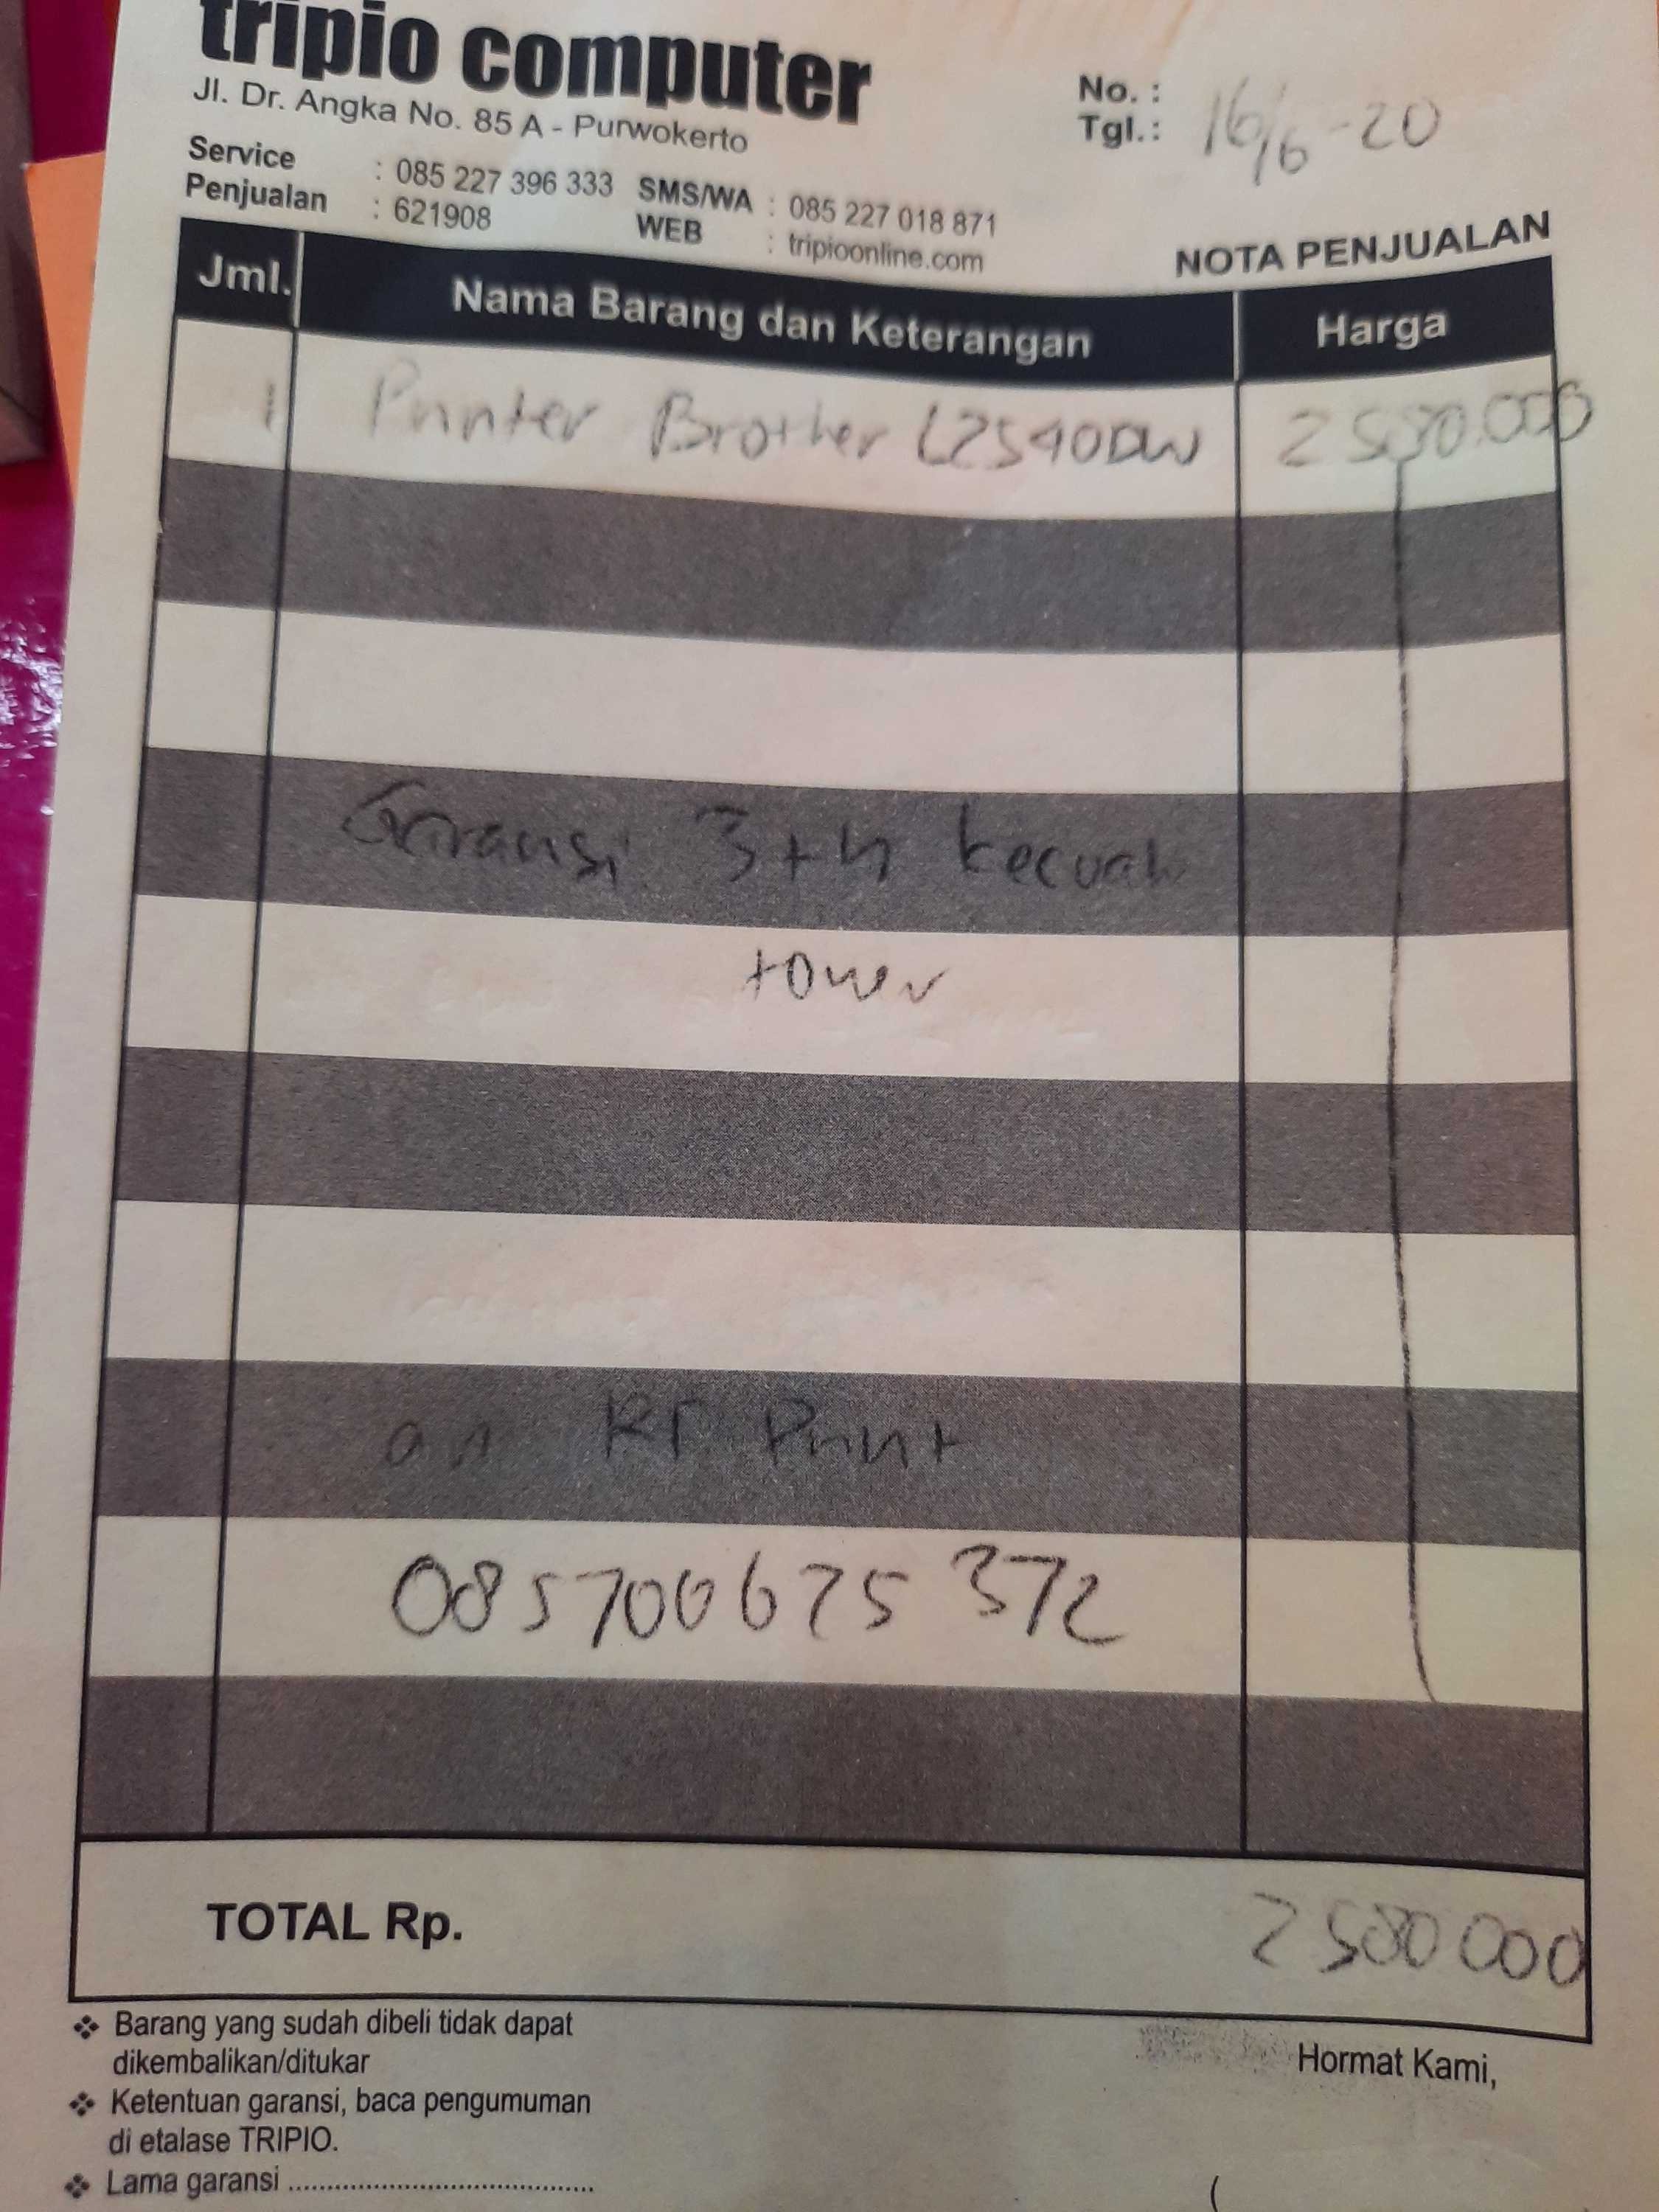 tripio computer
Jl. Dr. Angka No. 85 A - Purwokerto
Service : 085 227 396 333 SMS/WA : 085 227 018 871
Penjualan : 621908 WEB : tripioonline.com
No. :
Tgl. : 16/6-20
NOTA PENJUALAN
Jml. Nama Barang dan Keterangan Harga
1 Printer Brother L2540DW 2580.000
Garansi 3th kecuali
toner
an RF Print
085700675372
TOTAL Rp. 2580 000
Barang yang sudah dibeli tidak dapat
dikembalikan/ditukar
Ketentuan garansi, baca pengumuman
di etalase TRIPIO.
Lama garansi ..........................................
Hormat Kami,